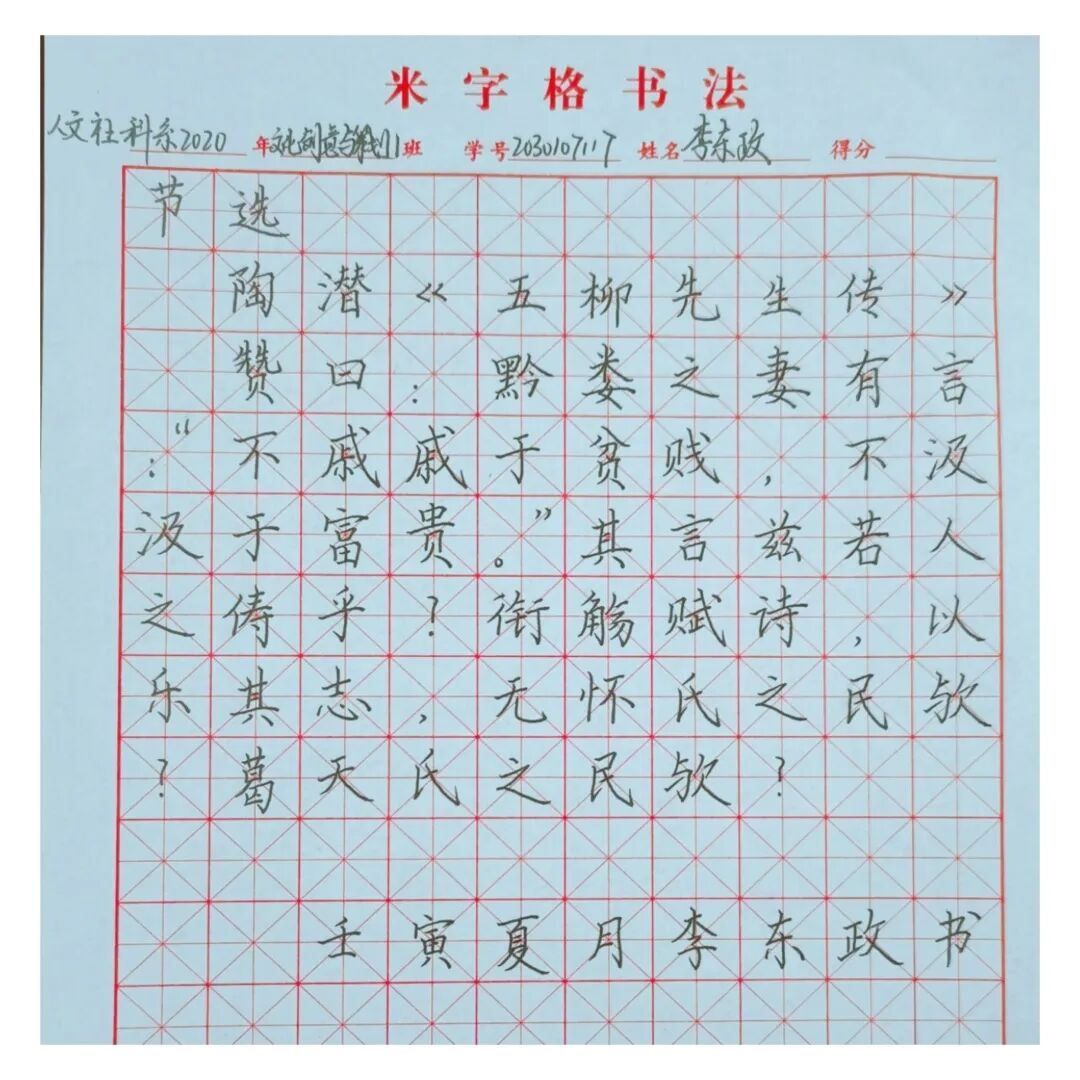 米字格书法
人文社科系2020 年文化创意与策划11班 学号2030107117 姓名李东政 得分
节选
陶潜《五柳先生传》
赞曰：黔娄之妻有言
：“不戚戚于贫贱，不汲
汲于富贵。”其言兹若人
之俦乎？衔觞赋诗，以
乐其志，无怀氏之民欤
？葛天氏之民欤？
壬寅夏月李东政书